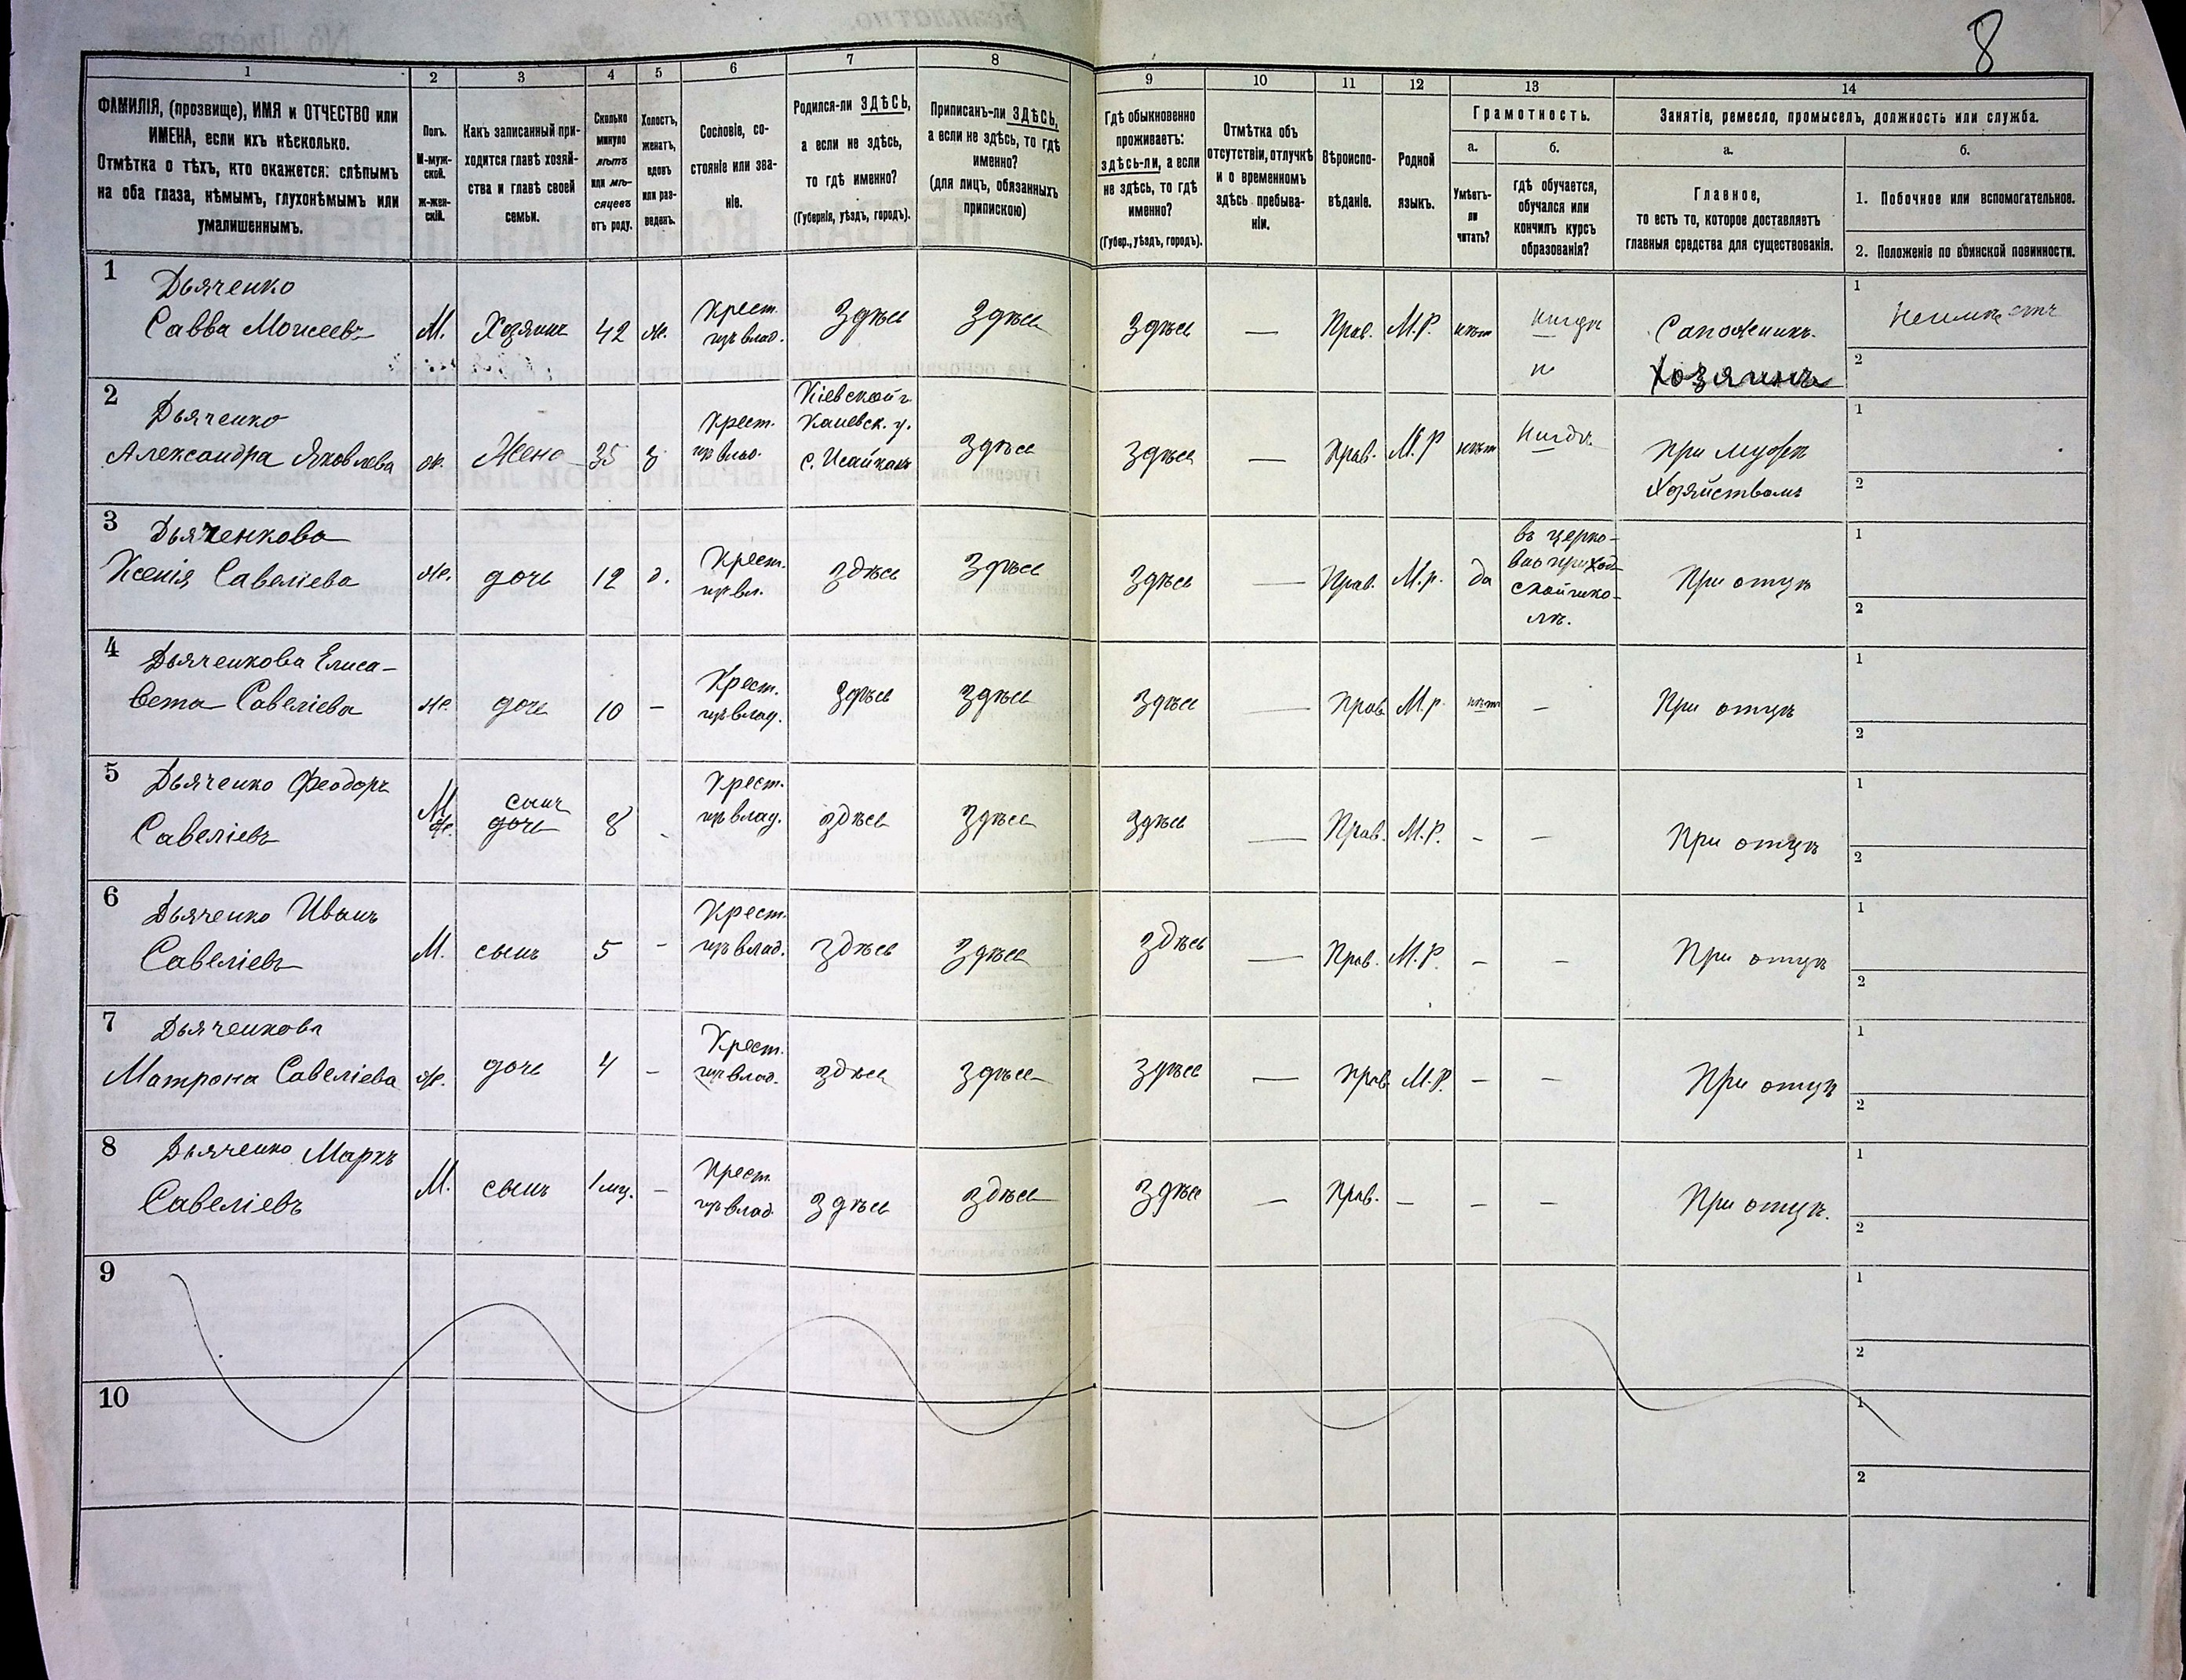 8
1 2 3 4 5 6 7 8 9 10 11 12 13 14
ФАМИЛІЯ, (прозвище), ИМЯ и ОТЧЕСТВО или
ИМЕНА, если ихъ нѣсколько.
Отмѣтка о тѣхъ, кто окажется: слѣпымъ
на оба глаза, нѣмымъ, глухонѣмымъ или
умалишеннымъ.
Полъ.
М-муж-
ской.
ж-жен-
скій.
Какъ записанный при-
ходится главѣ хозяй-
ства и главѣ своей
семьи.
Сколько
минуло
лѣтъ
или мѣ-
сяцевъ
отъ роду.
Холостъ,
женатъ,
вдовъ
или раз-
веденъ.
Сословіе, со-
стояніе или зва-
ніе.
Родился-ли ЗДѢСЬ,
а если не здѣсь,
то гдѣ именно?
(Губернія, уѣздъ, городъ).
Приписанъ-ли ЗДѢСЬ,
а если не здѣсь, то гдѣ
именно?
(для лицъ, обязанныхъ
припискою)
Гдѣ обыкновенно
проживаетъ:
здѣсь-ли, а если
не здѣсь, то гдѣ
именно?
(Губер., уѣздъ, городъ).
Отмѣтка объ
отсутствіи, отлучкѣ
и о временномъ
здѣсь пребыва-
ніи.
Вѣроиспо-
вѣданіе.
Родной
языкъ.
Грамотность.
а.
Умѣетъ-
ли
читать?
б.
гдѣ обучается,
обучался или
кончилъ курсъ
образованія?
Занятіе, ремесло, промыселъ, должность или служба.
а.
Главное,
то есть то, которое доставляетъ
главныя средства для существованія.
б.
1. Побочное или вспомогательное.
2. Положеніе по воинской повинности.
1 Дьяченко
Савва Моисеевъ М. Хозяинъ 42 ж. Крест. изъ влад. Здѣсь Здѣсь Здѣсь — Прав. М.Р. нѣтъ нигдѣ Сапожникъ. 1 Неимѣетъ
Хозяинъ 2
2 Дьяченко
Александра Яковлева ж. Жена 35 з Крест. изъ влад. Кіевской г. Каневск. у. с. Исайкахъ Здѣсь Здѣсь — Прав. М.Р нѣтъ Нигдѣ При мужѣ 1
Хозяйствомъ 2
3 Дьяченкова
Ксенія Савеліева ж. дочь 12 д. Крест. изъ вл. здѣсь Здѣсь Здѣсь — Прав. М.р. да въ церко-
вно приход-
ской шко-
лѣ. При отцѣ 1
2
4 Дьяченкова Елиса-
вета Савеліева ж. дочь 10 - Крест. изъ влад. Здѣсь Здѣсь Здѣсь — Прав. М.р. нѣтъ - При отцѣ 1
2
5 Дьяченко Феодоръ
Савеліевъ М ж. сынъ дочь 8 - Крест. изъ влад. здѣсь Здѣсь Здѣсь — Прав. М.Р. - - При отцѣ 1
2
6 Дьяченко Иванъ
Савеліевъ М. сынъ 5 - Крест. изъ влад. здѣсь Здѣсь здѣсь — Прав. М.Р. - - При отцѣ 1
2
7 Дьяченкова
Матрона Савеліева ж. дочь 4 - Крест. изъ влад. здѣсь Здѣсь Здѣсь — Прав М.Р. - - При отцѣ 1
2
8 Дьяченко Маркъ
Савеліевъ М. сынъ 1 мц. - Крест. изъ влад. Здѣсь здѣсь Здѣсь — Прав. - - - При отцѣ. 1
2
9 1
2
10 1
2